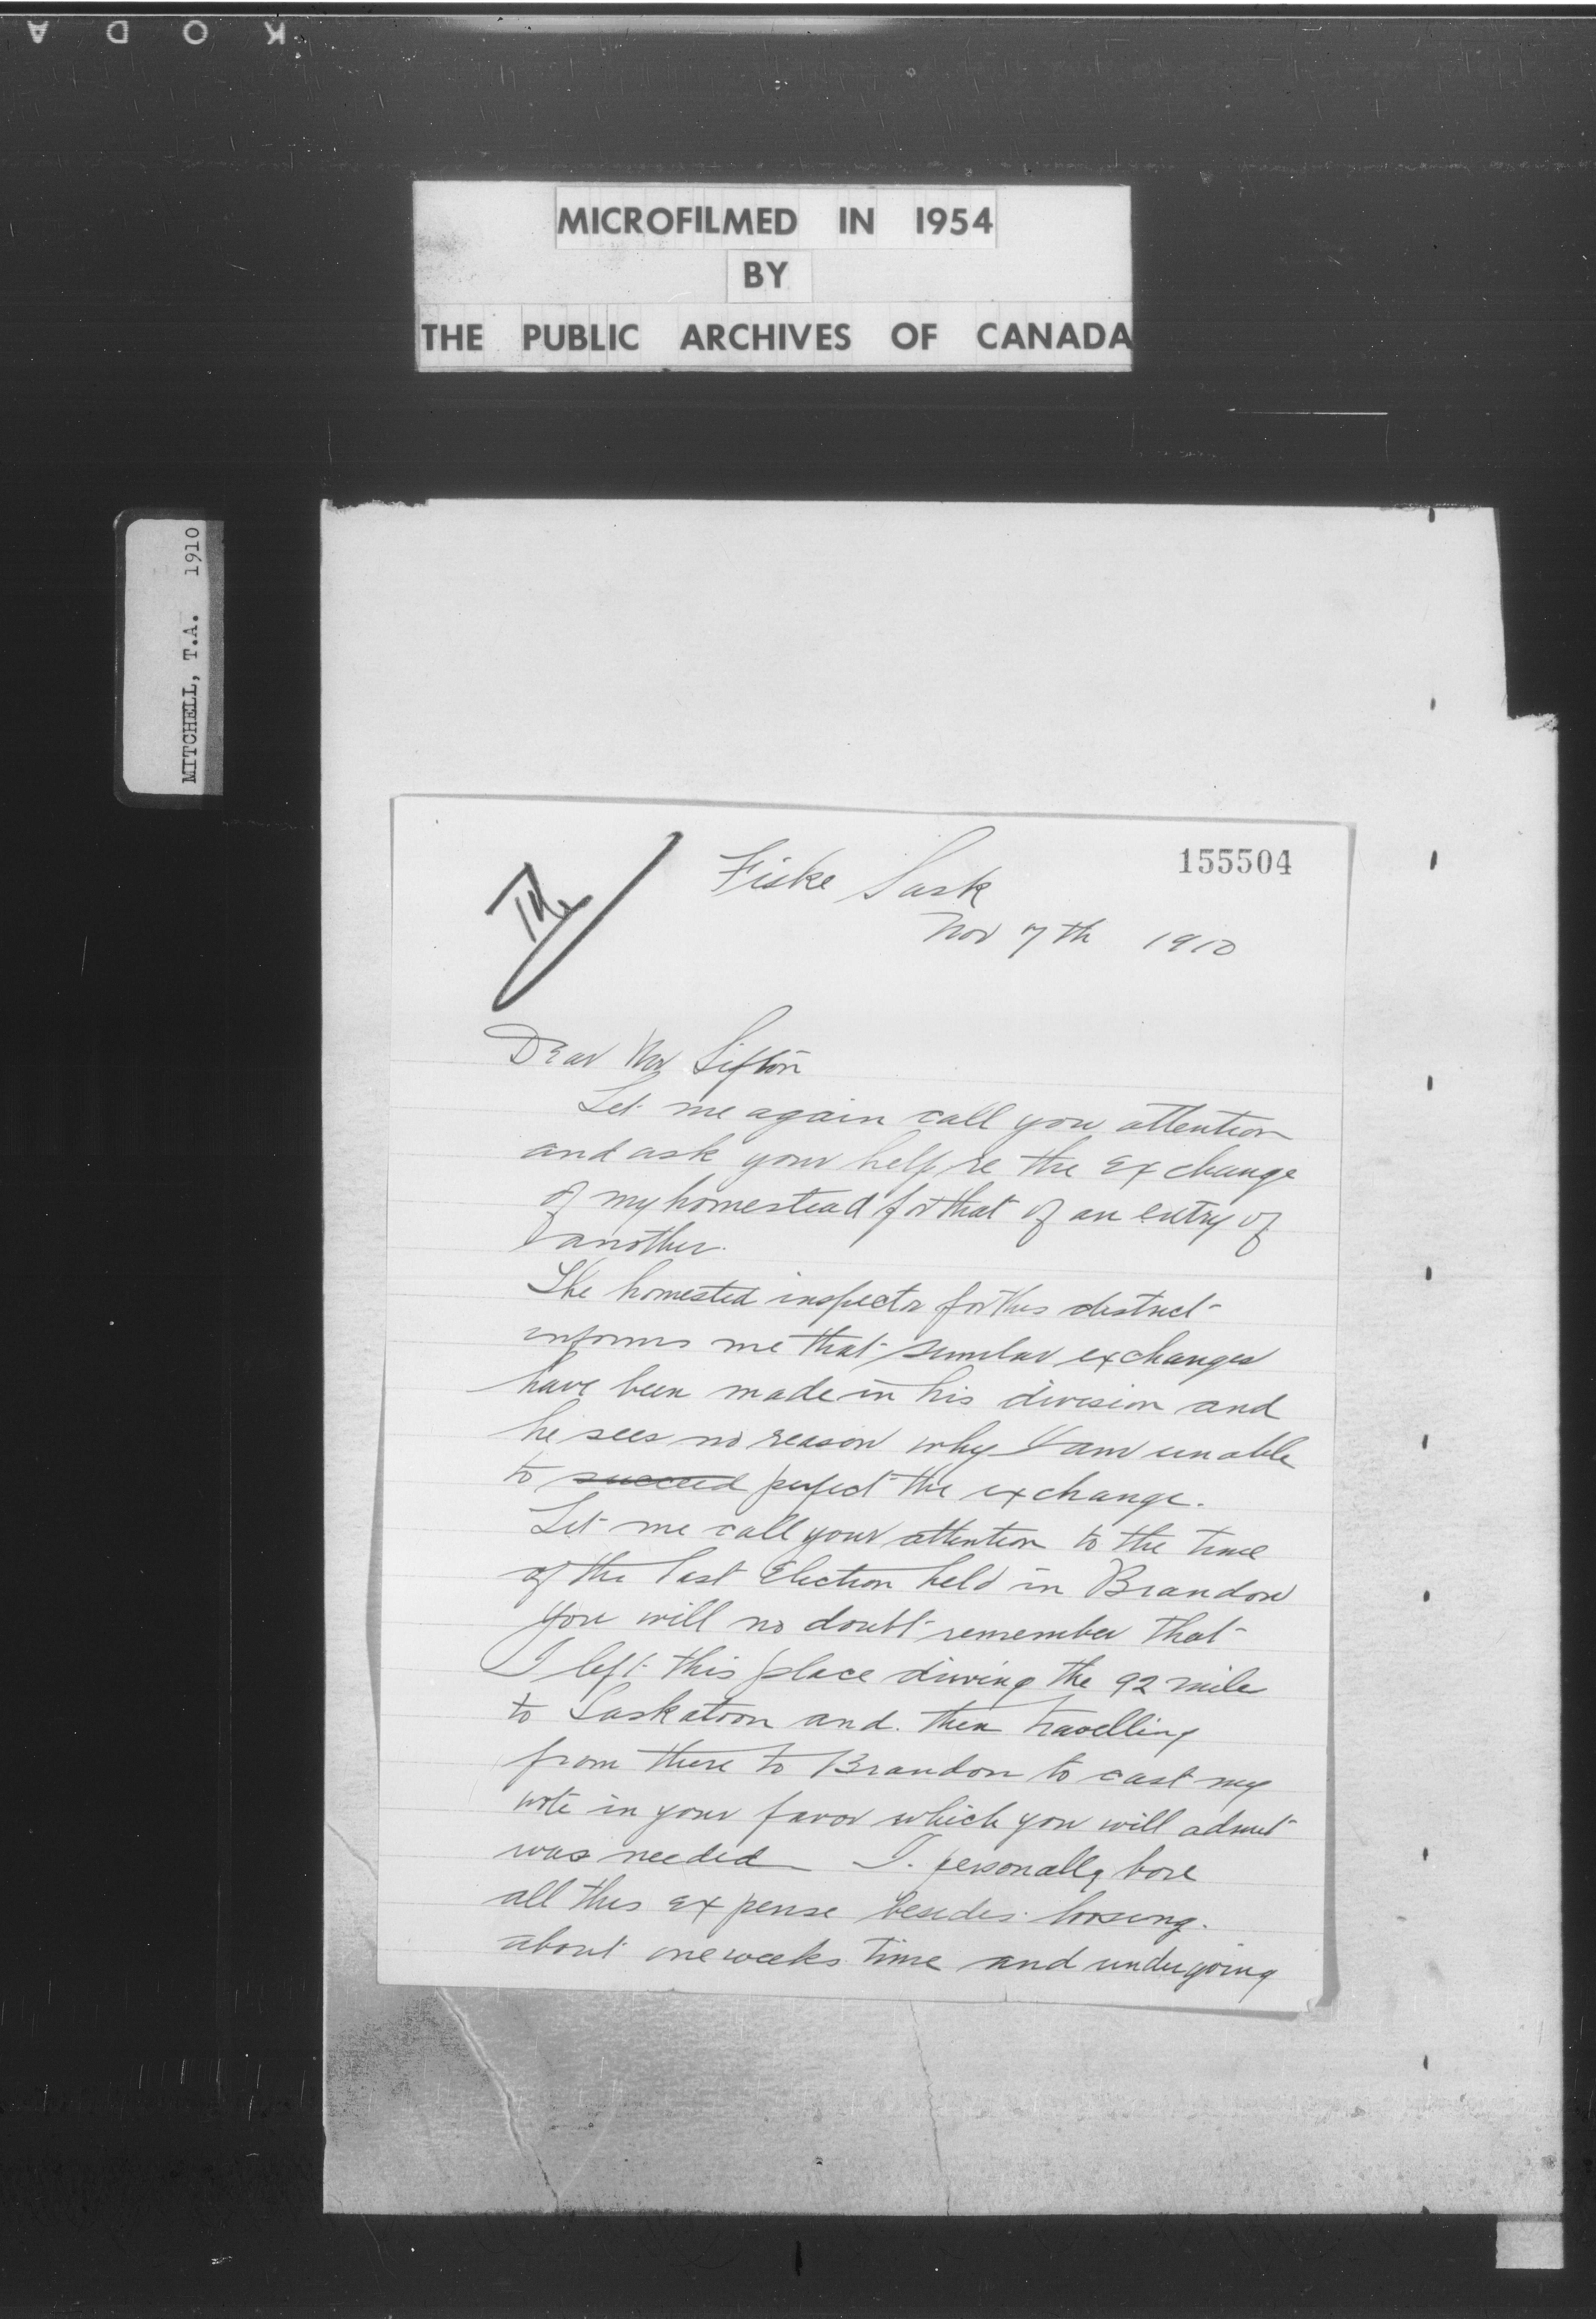 KODA
MICROFILMED IN 1954
BY
THE PUBLIC ARCHIVES OF CANADA
MITCHELL, T.A. 1910
155504
Fiske Sask
Nov 7th 1910
Dear Mr Sifton
Let me again call you attention
and ask your help re the exchange
of my homestead for that of an entry of
another.
The homested inspector for this district
informs me that similar exchanges
have been made in his division and
he sees no reason why I am unable
to succeed perfect the exchange.
Let me call your attention to the time
of the last Election held in Brandon
you will no doubt remember that
I left this place driving the 92 mile
to Saskatoon and then travelling
from there to Brandon to cast my
vote in your favor which you will admit
was needed I. personally bore
all this expense besides loosing.
about one weeks time and undergoing